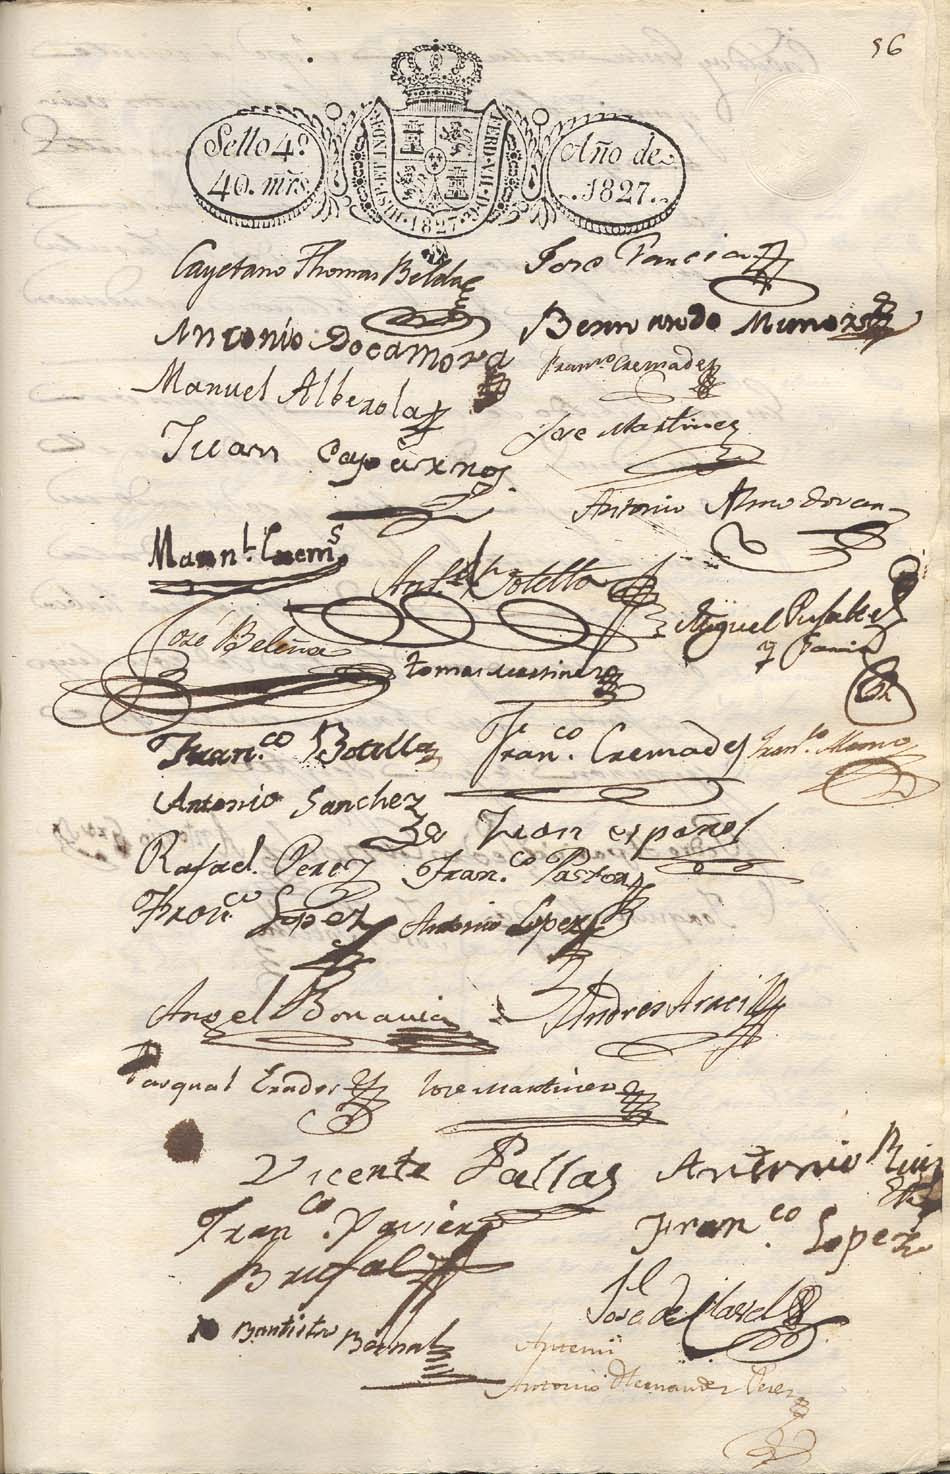 56
Sello 4º
40. mrs
FERD. VII. D. G.
HISP. ET IND. R.
1827
Año de
1827.
Cayetano Thomas Belda
Jose Garcia
Antonio Rocamora
Bernardo Munoz
Manuel Alberola
Fran.co Cremades
Juan
Jose Martinez
Antonio Almodovar
Man.l
Ant.
José Beleña
Miguel
y Garcia
tomas martinez
Fran.co Botella
Fran.co Cremades
Fran.co
Antonio Sanchez
Juan español
Rafael Perez
Fran.co Pastor
Fran.co Lopez
Antonio Lopez
Angel Bonavia
Andres Aracil
Pasqual
Jose Martinez
Vicente Pallas
Antonio Ruiz
Fran.co Xavier
Brufal
Fran.co Lopez
Jose de Clavel
Bautista Bernal
Antoni
Antonio Hernandez Perez